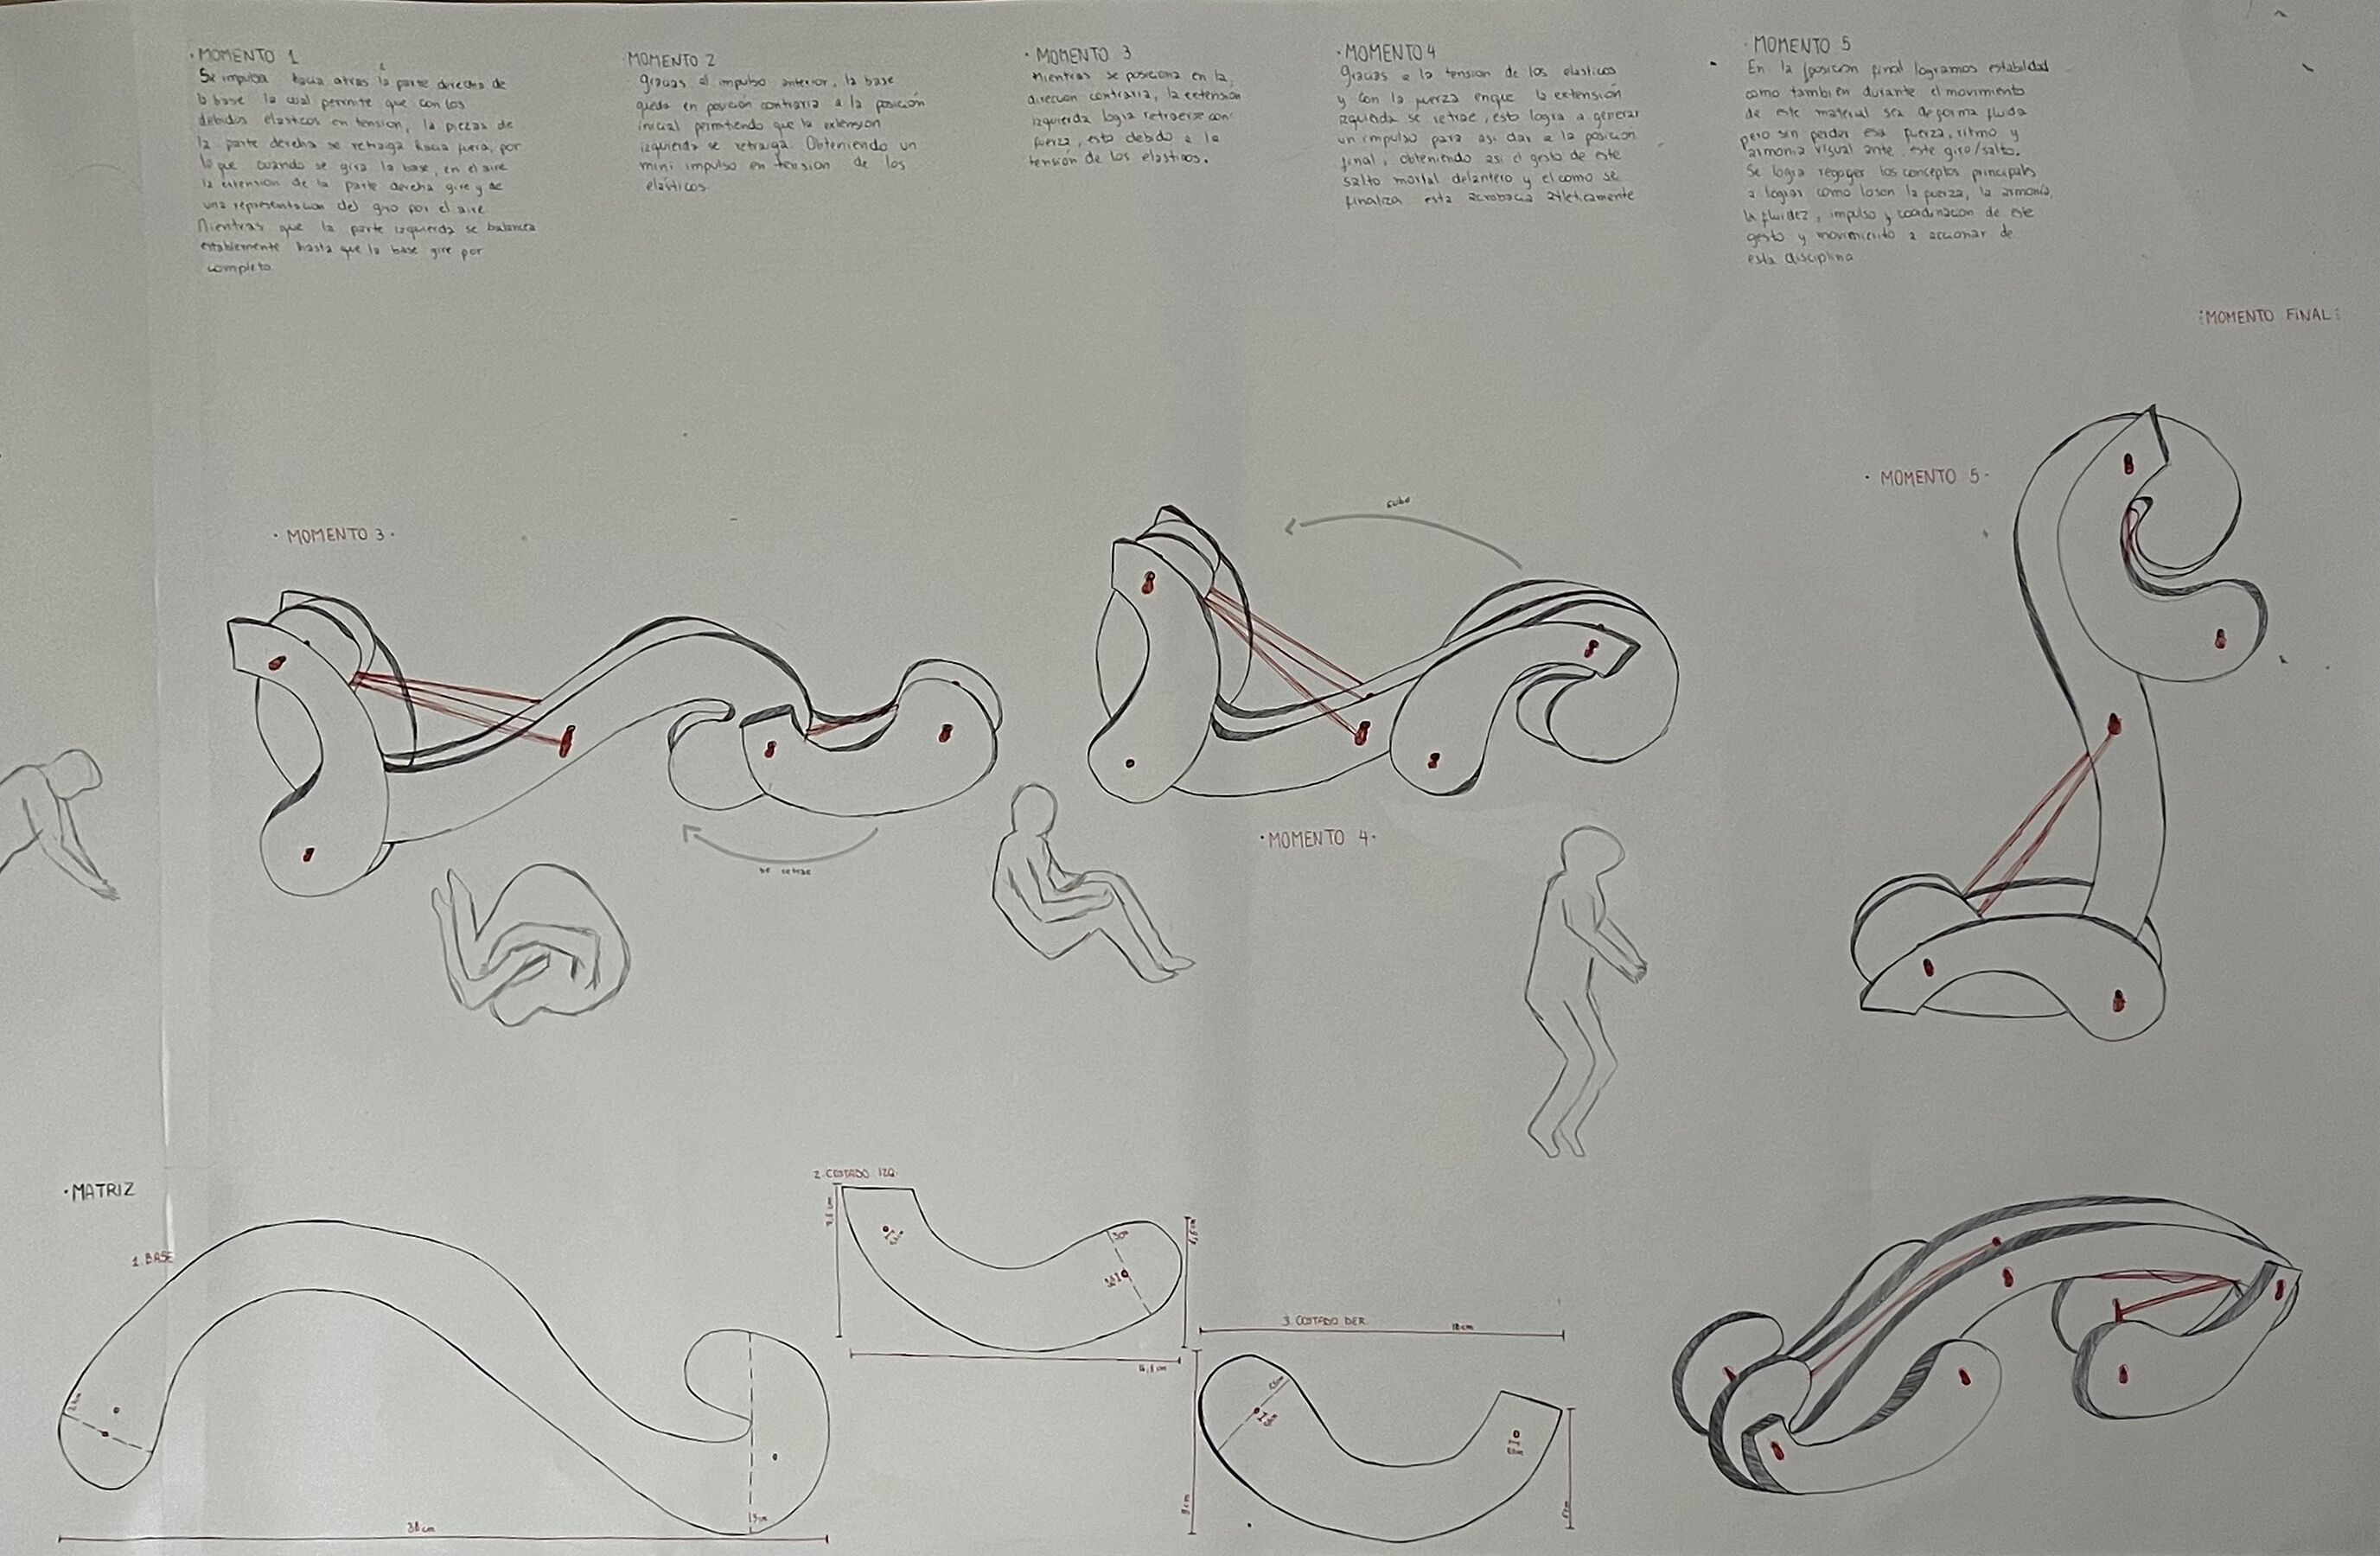 · MOMENTO 1
Se impulsa hacia atras la parte derecha de
la base la cual permite que con los
debidos elasticos en tension, la piezas de
la parte derecha se retraiga hacia fuera, por
lo que cuando se gira la base, en el aire
la extension de la parte derecha gire y de
una representacion del giro por el aire
Mientras que la parte izquierda se balancea
establemente hasta que la base gire por
completo.
MOMENTO 2
gracias al impulso anterior, la base
queda en posición contraria a la posición
inicial permitiendo que la extension
izquierda se retraiga. Obteniendo un
mini impulso en tension de los
elasticos.
· MOMENTO 3
Mientras se posiciona en la
direccion contraria, la extension
izquierda logra retraerse con
fuerza, esto debido a la
tensión de los elasticos.
· MOMENTO 4
gracias a la tension de los elasticos
y con la fuerza enque la extensión
izquierda se retrae, esto logra a generar
un impulso para asi dar a la posicion
final, obteniendo asi el gesto de este
salto mortal delantero y el como se
finaliza esta acrobacia atleticamente
· MOMENTO 5
En la posición final logramos estabilidad
como tambien durante el movimiento
de este material sea de forma fluida
pero sin perder esa fuerza, ritmo y
armonia visual ante este giro/salto.
Se logra recoger los conceptos principales
a lograr como loson la fuerza, la armonía,
la fluidez, impulso y coordinacion de este
gesto y movimiento a accionar de
esta disciplina
:MOMENTO FINAL:
· MOMENTO 3 ·
sube
· MOMENTO 5 ·
se retrae
· MOMENTO 4 ·
· MATRIZ
1. BASE
38 cm
2. COSTADO IZQ.
3. COSTADO DER.
18 cm
9 cm